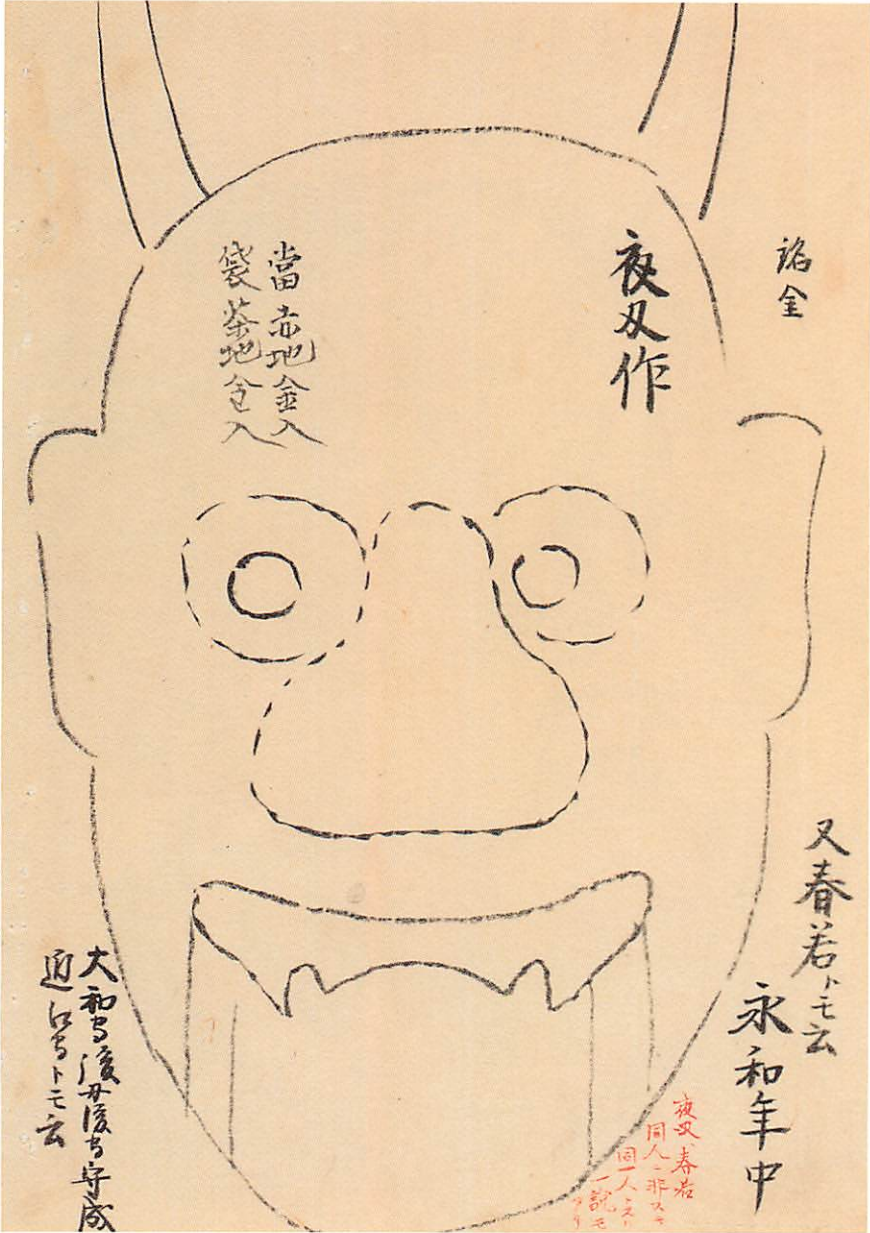 銘金
夜叉作
當 赤地金入
袋 茶地金入
又春若トモ云
永和年中
夜叉、春若
同人ニ非ス
同一人
一説モ
アリ
大和守後丹後守守成
近江守トモ云